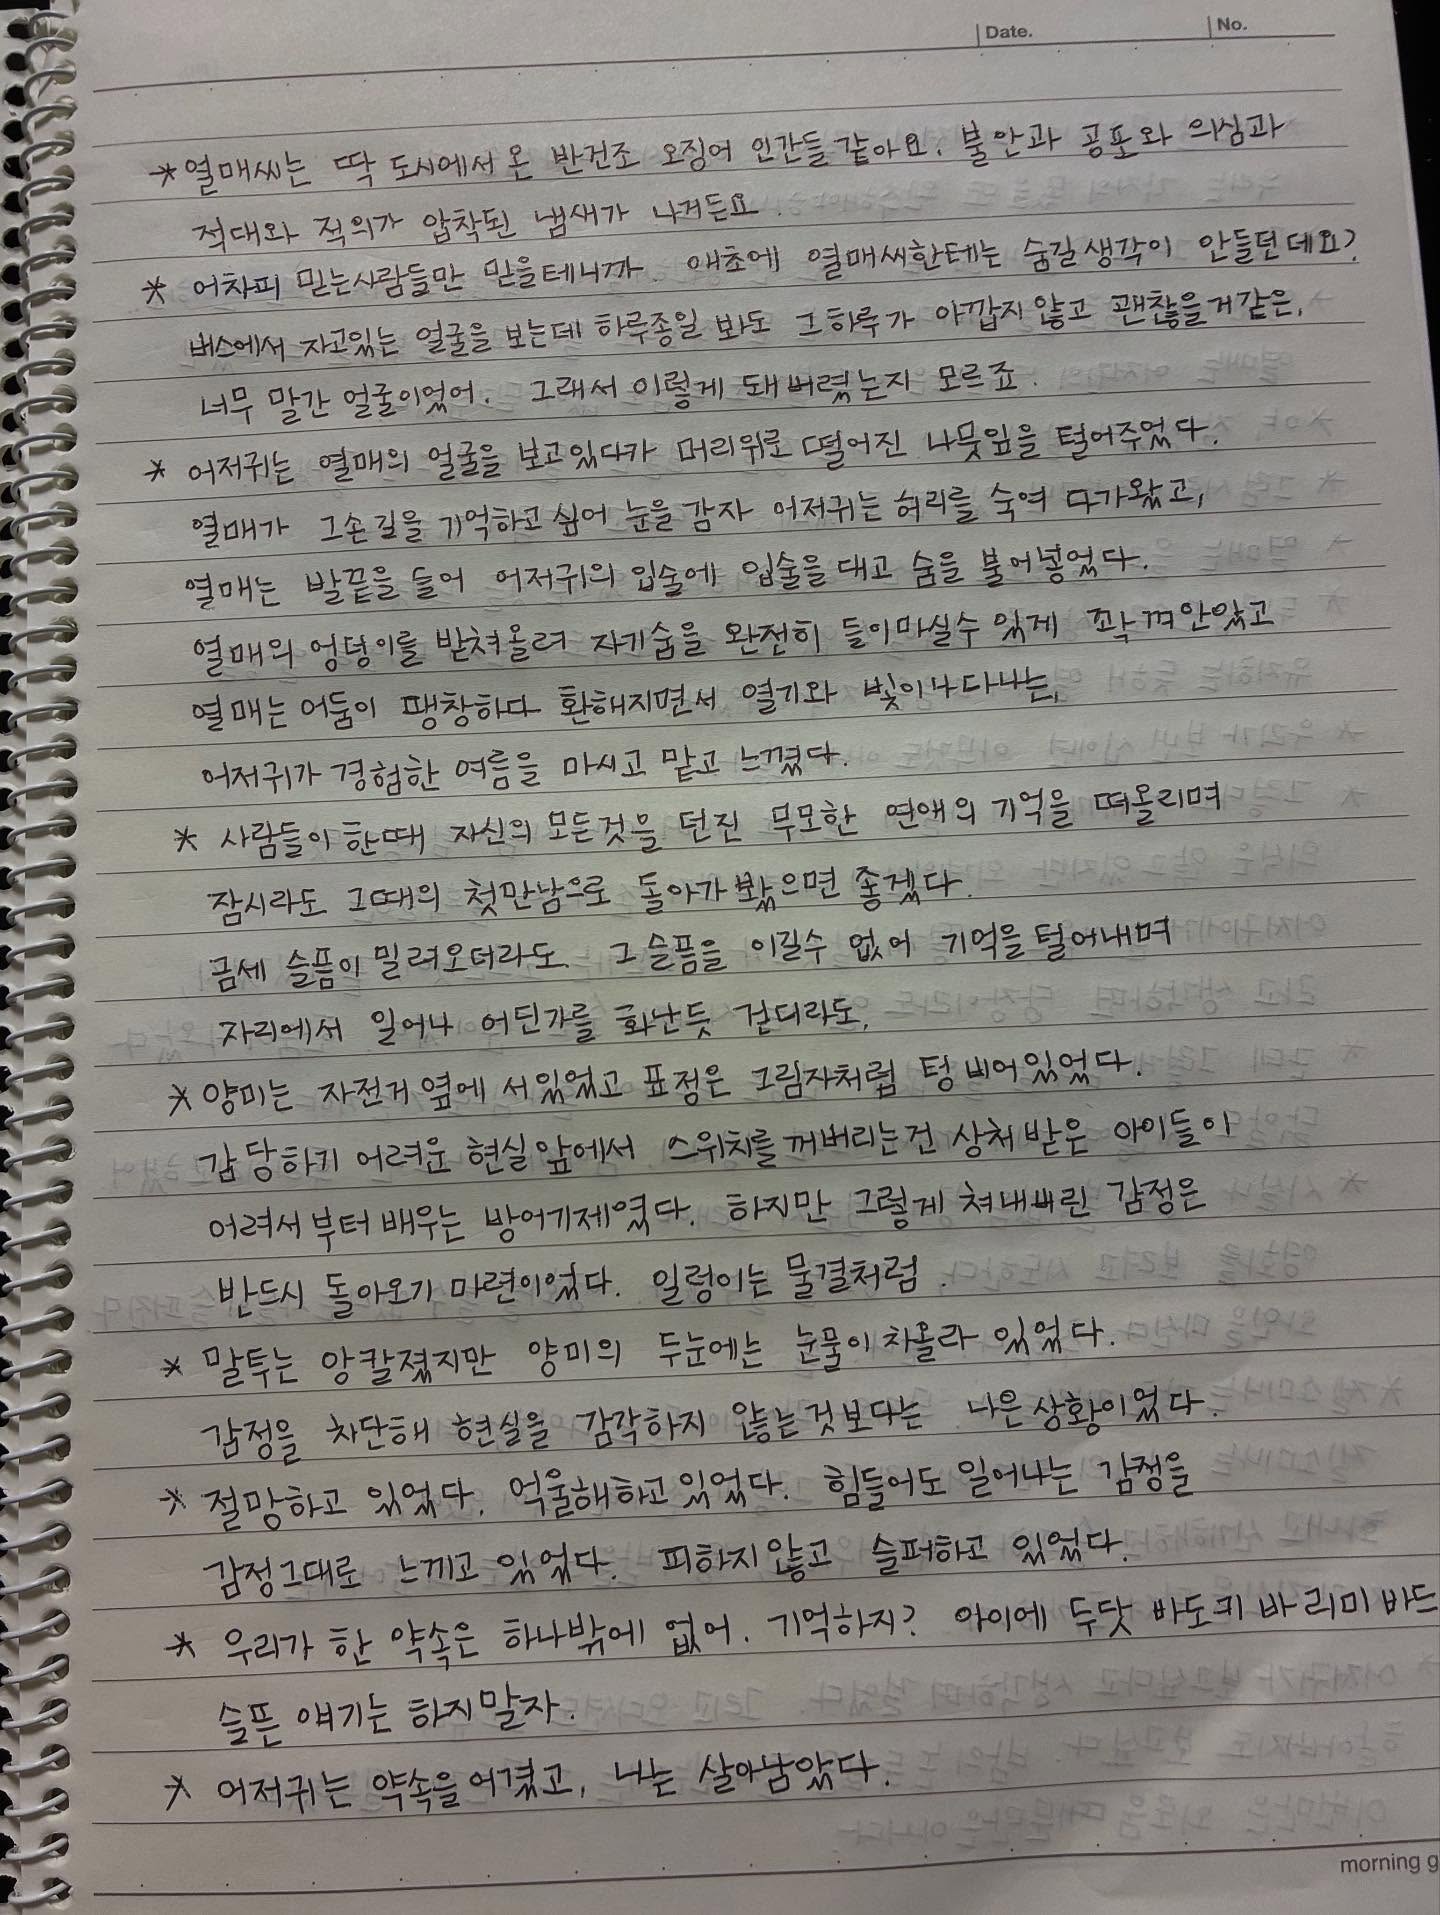 Date.
No.
* 열매씨는 딱 도시에서 온 반건조 오징어 인간들 같아요. 불안과 공포와 의심과
적대와 적의가 압착된 냄새가 나거든요.
* 어차피 믿는사람들만 믿을테니까. 애초에 열매씨한테는 숨길생각이 안들던데요?
버스에서 자고있는 얼굴을 보는데 하루종일 봐도 그하루가 아깝지않고 괜찮을거같은,
너무 말간 얼굴이었어. 그래서 이렇게 돼버렸는지 모르죠.
* 어저귀는 열매의 얼굴을 보고있다가 머리위로 떨어진 나뭇잎을 털어주었다.
열매가 그손길을 기억하고 싶어 눈을 감자 어저귀는 허리를 숙여 다가왔고,
열매는 발끝을 들어 어저귀의 입술에 입술을 대고 숨을 불어넣었다.
열매의 엉덩이를 받쳐올려 자기숨을 완전히 들이마실수 있게 꽉 껴안았고
열매는 어둠이 팽창하다 환해지면서 열기와 빛이 나다나는,
어저귀가 경험한 여름을 마시고 맡고 느꼈다.
* 사람들이 한때 자신의 모든것을 던진 무모한 연애의 기억을 떠올리며
잠시라도 그때의 첫만남으로 돌아가 봤으면 좋겠다.
금세 슬픔이 밀려오더라도. 그 슬픔을 이길수 없어 기억을 털어내며
자리에서 일어나 어딘가를 화난듯 걷더라도,
* 양미는 자전거 옆에 서있었고 표정은 그림자처럼 텅 비어있었다.
감당하기 어려운 현실앞에서 스위치를 꺼버리는건 상처받은 아이들이
어려서부터 배우는 방어기제였다. 하지만 그렇게 쳐내버린 감정은
반드시 돌아오기 마련이었다. 일렁이는 물결처럼.
* 말투는 앙칼졌지만 양미의 두눈에는 눈물이 차올라 있었다.
감정을 차단해 현실을 감각하지 않는것보다는 나은상황이었다.
* 절망하고 있었다. 억울해하고있었다. 힘들어도 일어나는 감정을
감정그대로 느끼고 있었다. 피하지않고 슬퍼하고 있었다.
* 우리가 한 약속은 하나밖에 없어. 기억하지? 아이에 두닷 바도키 바리미 바드
슬픈 얘기는 하지말자.
* 어저귀는 약속을어겼고, 나는 살아남았다.
morning g